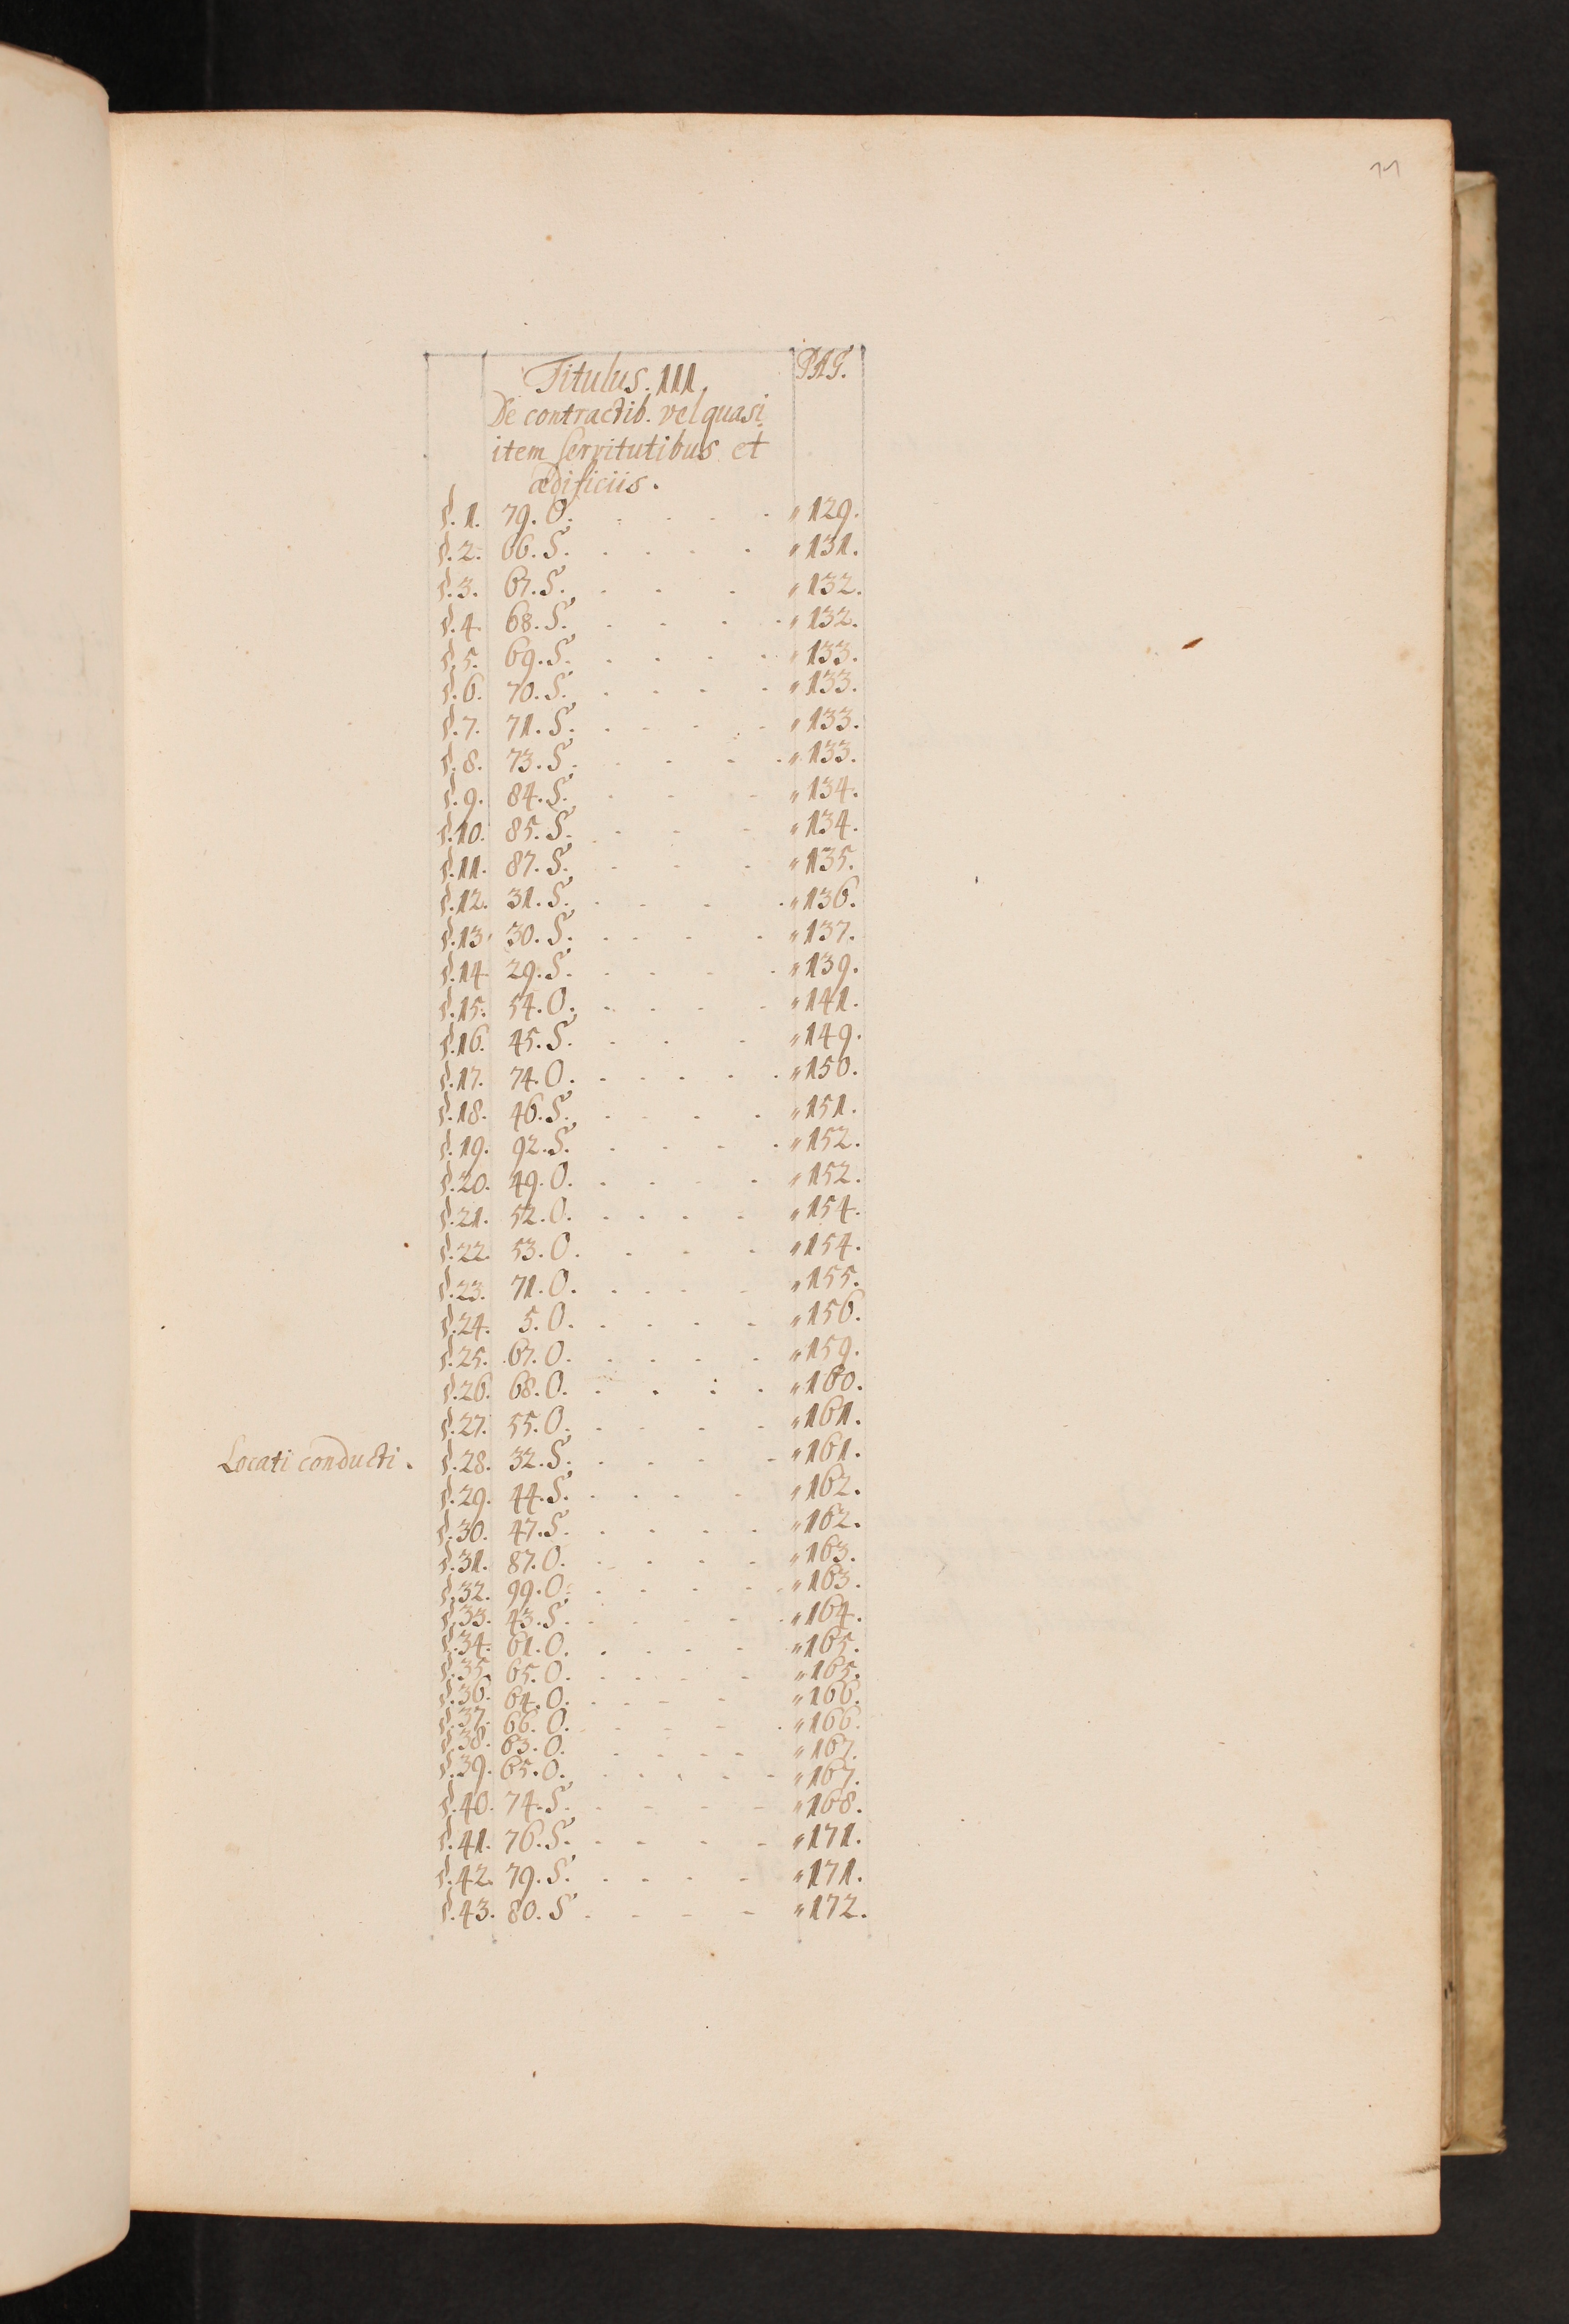 11
Titulus. III. PAG.
De contractib. vel quasi
item servitutibus et
ædificiis.
§. 1. 79. O. . . . . „ 129.
§. 2. 66. S. . . . . „ 131.
§. 3. 67. S. . . . „ 132.
§. 4. 68. S. . . . . „ 132.
§. 5. 69. S. . . . . „ 133.
§. 6. 70. S. . . . . „ 133.
§. 7. 71. S. . . . . „ 133.
§. 8. 73. S. . . . . „ 133.
§. 9. 84. S. . . . „ 134.
§. 10. 85. S. . . . „ 134.
§. 11. 87. S. . . . „ 135.
§. 12. 31. S. . . . . „ 136.
§. 13. 30. S. . . . . „ 137.
§. 14. 29. S. . . . . „ 139.
§. 15. 54. O. . . . . „ 141.
§. 16. 45. S. . . . „ 149.
§. 17. 74. O. . . . . . „ 150.
§. 18. 46. S. . . . . „ 151.
§. 19. 92. S. . . . . „ 152.
§. 20. 49. O. . . . . „ 152.
§. 21. 52. O. . . . . „ 154.
§. 22. 53. O. . . . „ 154.
§. 23. 71. O. . . . . „ 155.
§. 24. 5. O. . . . . „ 156.
§. 25. 67. O. . . . . „ 159.
§. 26. 68. O. . . . . „ 160.
§. 27. 55. O. . . . . „ 161.
Locati conducti. §. 28. 32. S. . . . . „ 161.
§. 29. 44. S. . . . . „ 162.
§. 30. 47. S. . . . . „ 162.
§. 31. 87. O. . . . . „ 163.
§. 32. 99. O. . . . . „ 163.
§. 33. 43. S. . . . . „ 164.
§. 34. 61. O. . . . . „ 165.
§. 35. 65. O. . . . . „ 165.
§. 36. 64. O. . . . . „ 166.
§. 37. 66. O. . . . . „ 166.
§. 38. 63. O. . . . . „ 167.
§. 39. 65. O. . . . . „ 167.
§. 40. 74. S. . . . . „ 168.
§. 41. 76. S. . . . . „ 171.
§. 42. 79. S. . . . . „ 171.
§. 43. 80. S . . . . „ 172.